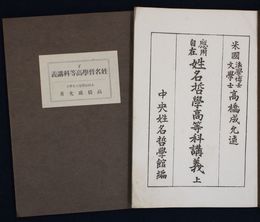 米國 法學博士 文學士 高橋成允述
應用自在 姓名哲學高等科講義 上
中央姓名哲學館編
姓名哲學高等科講義